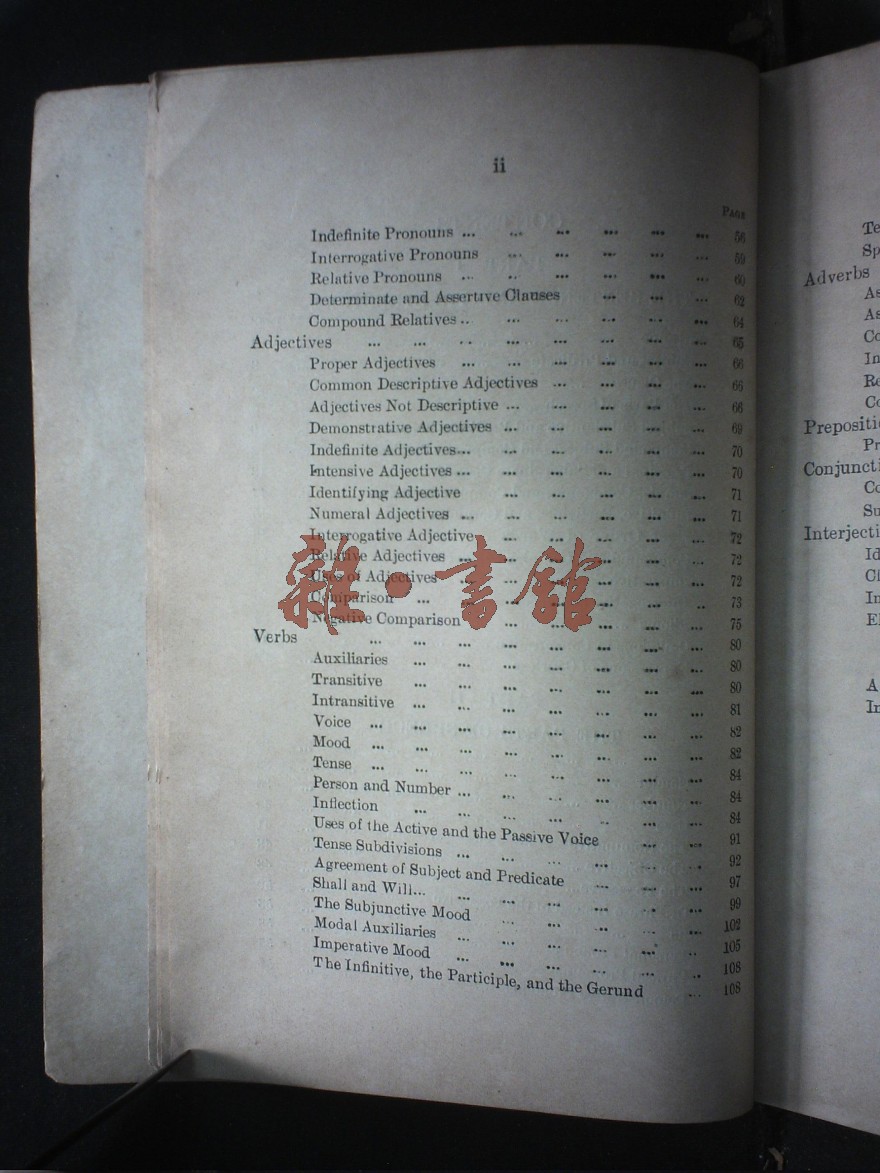 ii
PAGE
Indefinite Pronouns ... ... ... ... ... ... 56
Interrogative Pronouns ... ... ... ... ... 59
Relative Pronouns ... ... ... ... ... ... 60
Determinate and Assertive Clauses ... ... ... 62
Compound Relatives .. ... ... ... ... ... 64
Adjectives ... ... ... ... ... ... ... ... 65
Proper Adjectives ... ... ... ... ... ... 66
Common Descriptive Adjectives ... ... ... ... 66
Adjectives Not Descriptive ... ... ... ... ... 66
Demonstrative Adjectives ... ... ... ... ... 69
Indefinite Adjectives... ... ... ... ... ... 70
Intensive Adjectives ... ... ... ... ... ... 70
Identifying Adjective ... ... ... ... ... 71
Numeral Adjectives ... ... ... ... ... ... 71
Interrogative Adjective ... ... ... ... ... 72
Relative Adjectives ... ... ... ... ... ... 72
Uses of Adjectives ... ... ... ... ... 72
Comparison ... ... ... ... ... ... .. 73
Negative Comparison ... ... ... ... ... 75
Verbs ... ... ... ... ... ... ... ... 80
Auxiliaries ... ... ... ... ... ... ... 80
Transitive ... ... ... ... ... ... ... 80
Intransitive ... ... ... ... ... ... ... 81
Voice ... ... ... ... ... ... ... ... 82
Mood ... ... ... ... ... ... ... ... 82
Tense ... ... ... ... ... ... ... ... 84
Person and Number ... ... ... ... ... ... 84
Inflection ... ... ... ... ... ... ... 84
Uses of the Active and the Passive Voice ... ... 91
Tense Subdivisions ... ... ... ... ... ... 92
Agreement of Subject and Predicate ... ... ... 97
Shall and Will... ... ... ... ... ... ... 99
The Subjunctive Mood ... ... ... ... ... 102
Modal Auxiliaries ... ... ... ... ... .. 105
Imperative Mood ... ... ... ... ... .. 108
The Infinitive, the Participle, and the Gerund ... 108
雜·書館
Te
Sp
Adverbs
As
As
Co
In
Re
Co
Prepositi
Pr
Conjuncti
Co
Su
Interjecti
Id
Cl
In
El
A
In